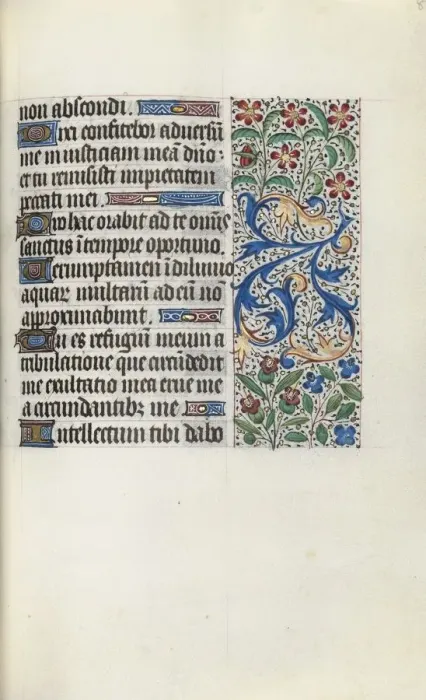 non abscondi.
Dixi confitebor adversū
me in iusticiam meā dño:
et tu remisisti impietatem
peccati mei.
Pro hac orabit ad te omīs
sanctus ī tempore oportuno.
Verumptamen ī diluvio
aquaꝝ multaꝝ ad eū nō
approximabunt.
Tu es refugiū meum a
tribulatione que circūdedit
me exultatio mea erue me
a circundantibꝫ me
Intellectum tibi dabo